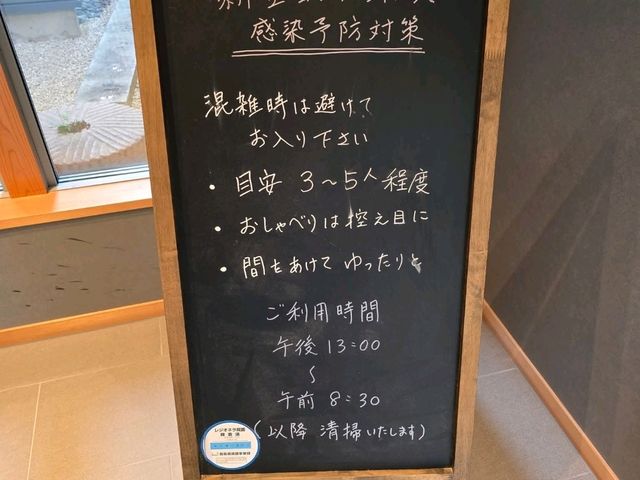 感染予防対策
混雑時は避けて
お入り下さい
・目安 3～5人程度
・おしゃべりは控え目に
・間をあけて ゆったりと
ご利用時間
午後 13:00
～
午前 8:30
(以降 清掃いたします)
レジオネラ属菌
検査済